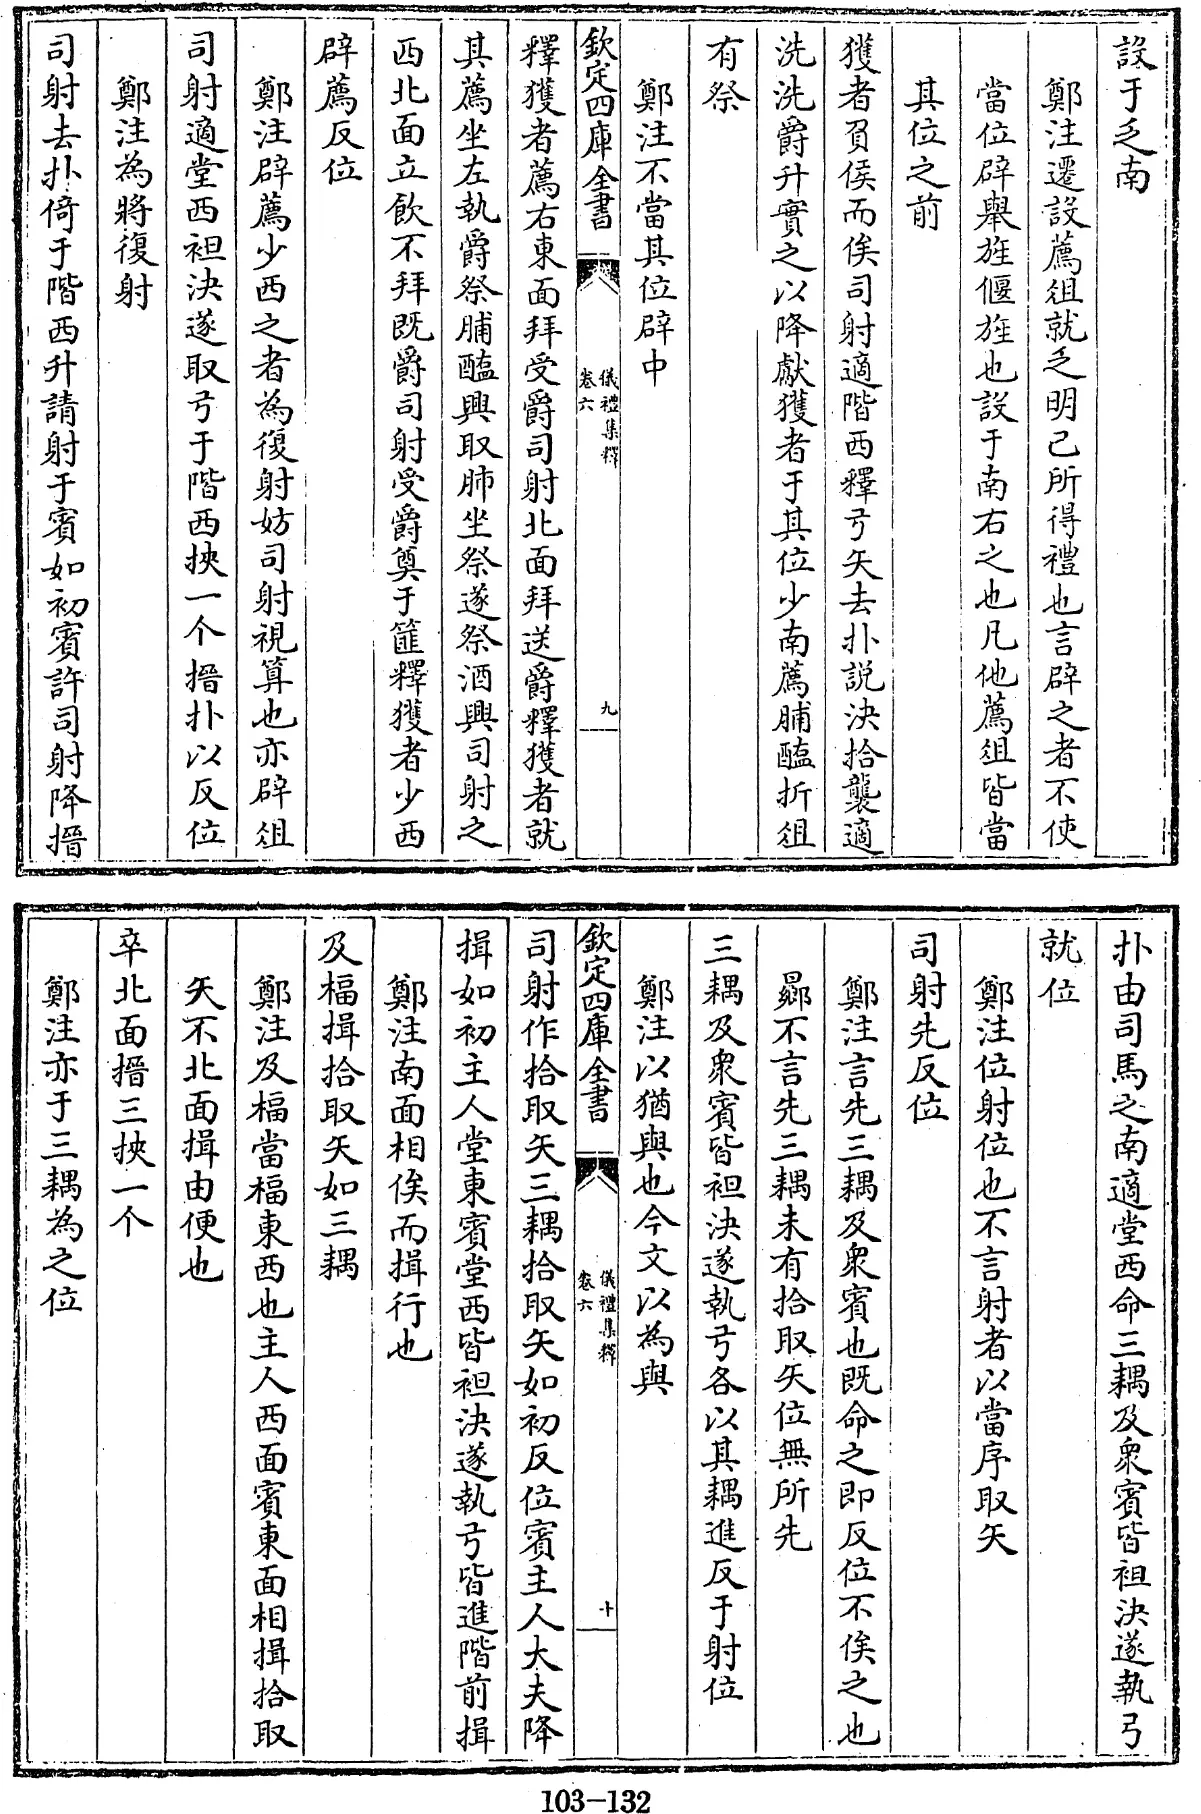 設于乏南
鄭注遷設薦俎就乏明己所得禮也言辟之者不使
當位辟舉旌偃旌也設于南右之也凡他薦俎皆當
其位之前
獲者負侯而俟司射適階西釋弓矢去扑説決拾襲適
洗洗爵升實之以降獻獲者于其位少南薦脯醢折俎
有祭
鄭注不當其位辟中
欽定四庫全書
儀禮集釋
卷六
九
釋獲者薦右東面拜受爵司射北面拜送爵釋獲者就
其薦坐左執爵祭脯醢興取肺坐祭遂祭酒興司射之
西北面立飲不拜既爵司射受爵奠于篚釋獲者少西
辟薦反位
鄭注辟薦少西之者為復射妨司射視算也亦辟俎
司射適堂西袒決遂取弓于階西挾一个搢扑以反位
鄭注為將復射
司射去扑倚于階西升請射于賓如初賓許司射降搢
扑由司馬之南適堂西命三耦及衆賓皆袒決遂執弓
就位
鄭注位射位也不言射者以當序取矢
司射先反位
鄭注言先三耦及衆賓也既命之即反位不俟之也
曏不言先三耦未有拾取矢位無所先
三耦及衆賓皆袒決遂執弓各以其耦進反于射位
鄭注以猶與也今文以為與
欽定四庫全書
儀禮集釋
卷六
十
司射作拾取矢三耦拾取矢如初反位賓主人大夫降
揖如初主人堂東賓堂西皆袒決遂執弓皆進階前揖
鄭注南面相俟而揖行也
及楅揖拾取矢如三耦
鄭注及楅當楅東西也主人西面賓東面相揖拾取
矢不北面揖由便也
卒北面搢三挾一个
鄭注亦于三耦為之位
103-132